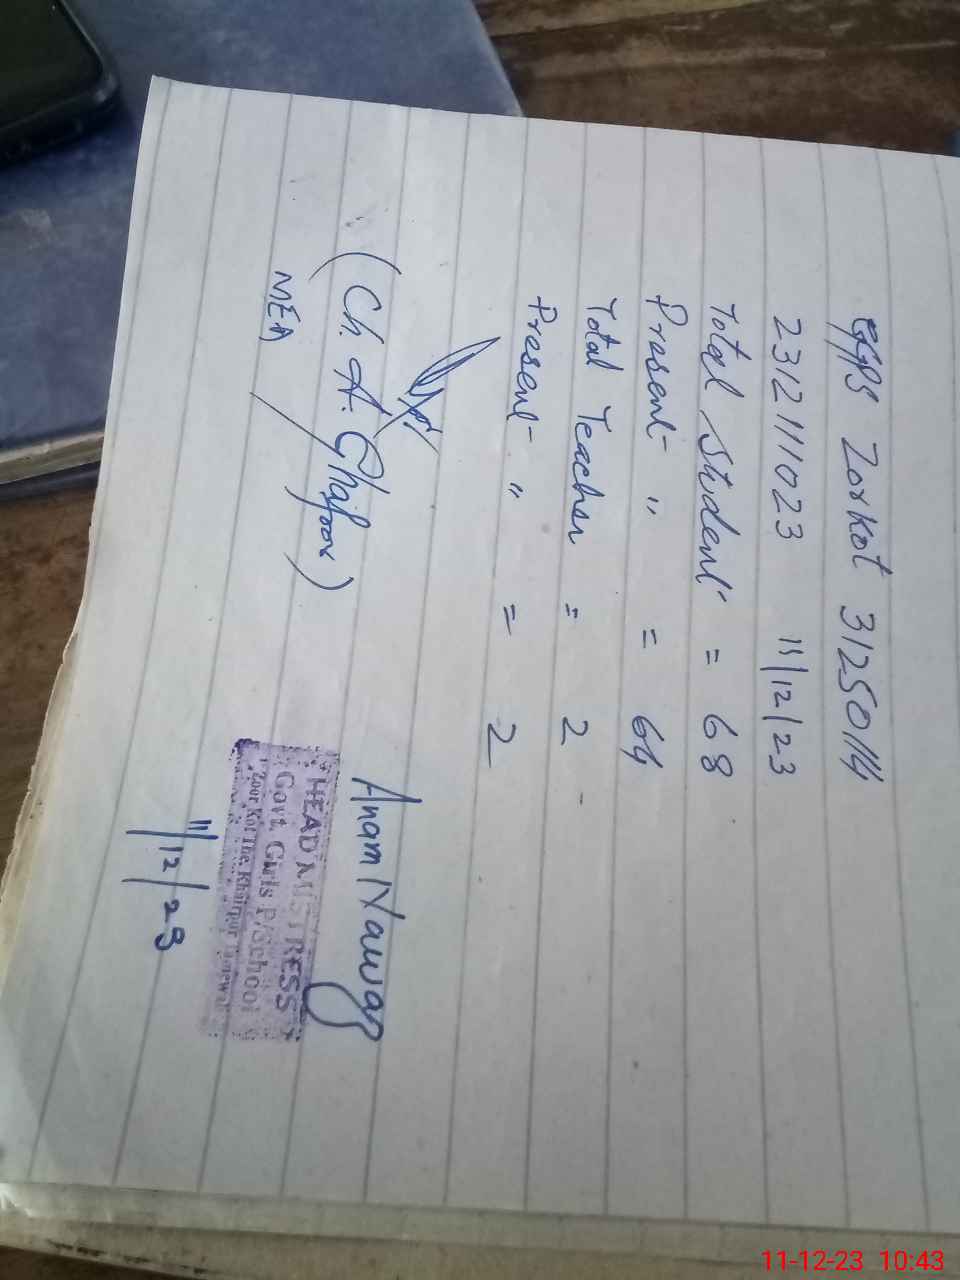 GGPS Zorkot 31250114
23121111023 11/12/23
Total Student = 68
Present " = 64
Total Teacher = 2
Present " = 2
(Ch. A. Ghafoor)
MEA
Anam Nawaz
HEADMISTRESS
Govt. Girls P/School
Zoor Kot The. Khairpur
11/12/23
11-12-23 10:43